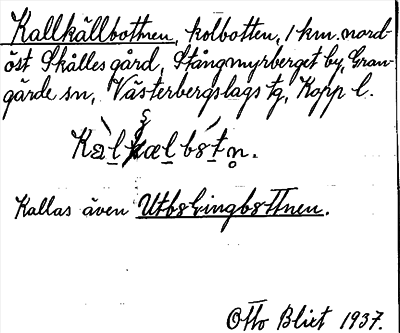 Kallkällbottnen, kolbotten, 1 km. nord-
öst Skålles gård, Stångmyrberget by, Gran-
gärde sn, Västerbergslags tg, Kopp l.
Kallas även Utbskingbottnen.
Otto Blixt 1937.